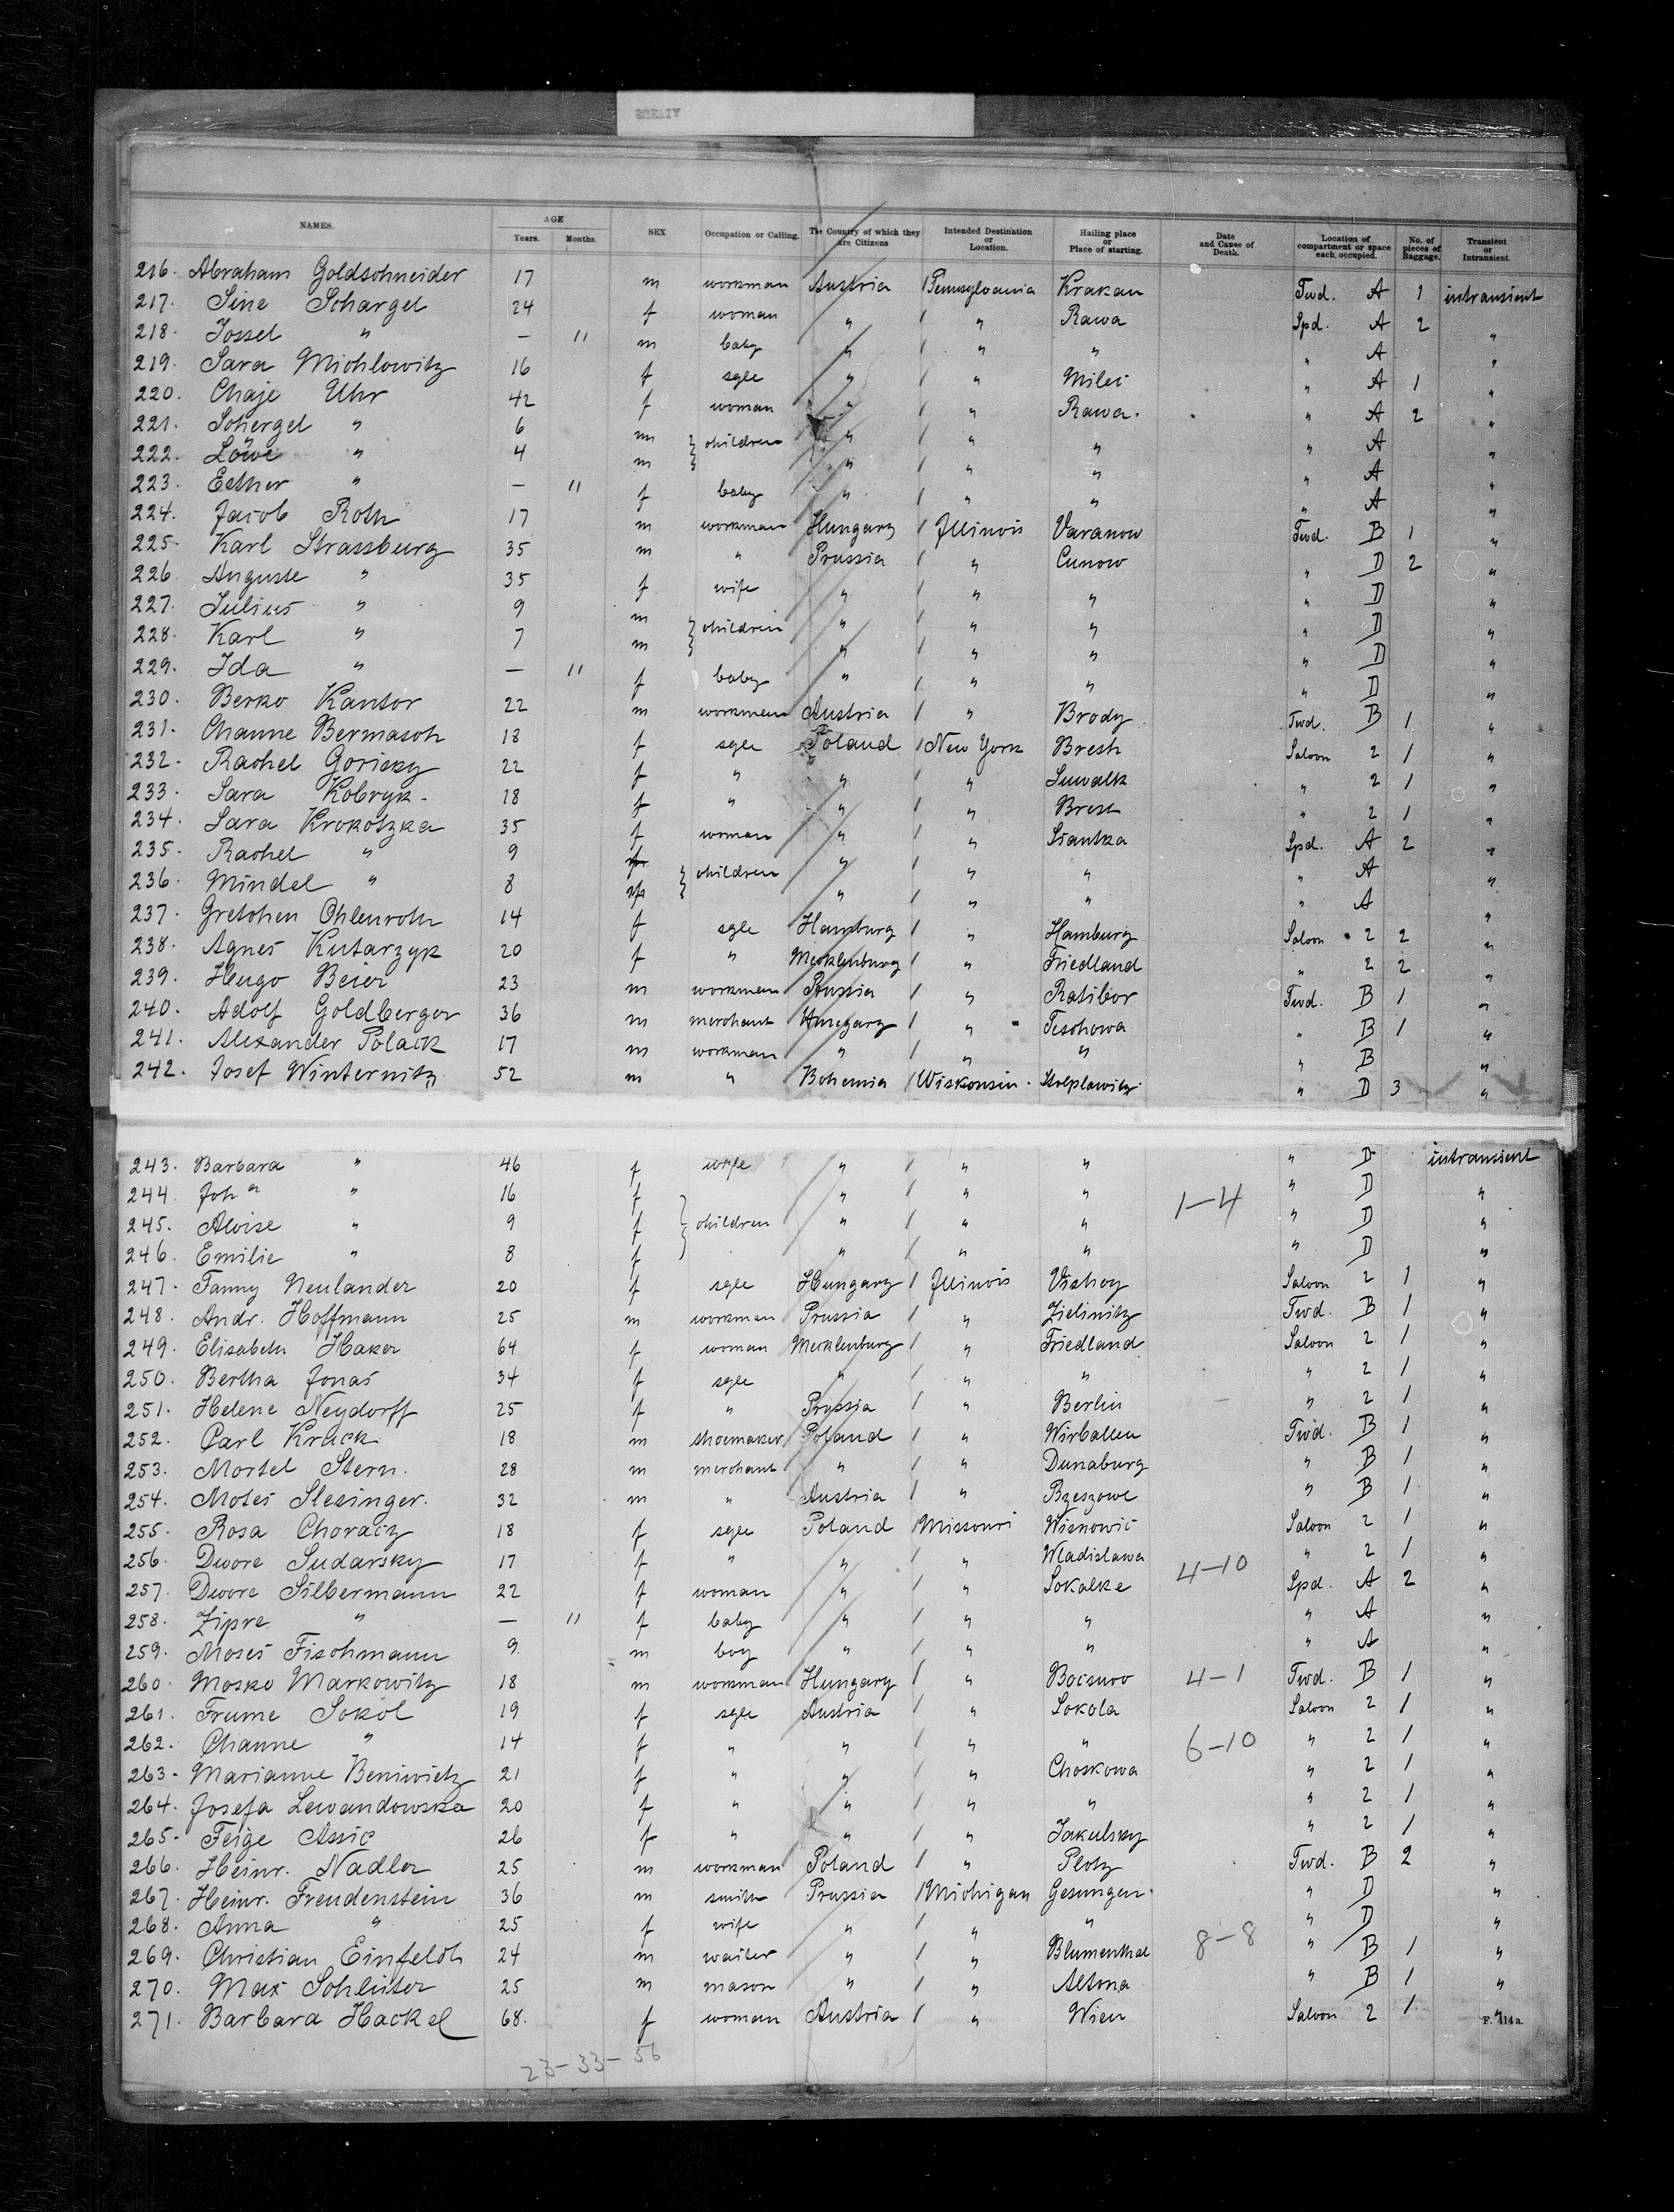 NAMES. AGE Years. Months. SEX Occupation or Calling. The Country of which they are Citizens Intended Destination or Location. Hailing place or Place of starting. Date and Cause of Death. Location of compartment or space each occupied. No. of pieces of Baggage. Transient or Intransient.
216. Abraham Goldschneider 17 m workman Austria / Pennsylvania Krakau Twd. A 1 intransient
217. Sine Schargel 24 f woman " / " Rawa Spd. A 2 "
218. Jossel " — 11 m baby " / " " " A "
219. Sara Michlowitz 16 f sgle " / " Milei " A 1 "
220. Chaje Uhr 42 f woman " / " Rawa. " A 2 "
221. Schergel " 6 m } children " / " " " A "
222. Löwe " 4 m " / " " " A "
223. Esther " — 11 f baby " / " " " A "
224. Jacob Roth 17 m workman Hungary / Illinois Varanow Twd. B 1 "
225. Karl Strassburg 35 m " Prussia / " Cunow " D 2 "
226. Auguste " 35 f wife " / " " " D "
227. Julius " 9 m } children " / " " " D "
228. Karl " 7 m " / " " " D "
229. Ida " — 11 f baby " / " " " D "
230. Berko Kantor 22 m workman Austria / " Brody Twd. B 1 "
231. Channe Bermasch 18 f sgle Poland / New York Bresh Saloon 2 1 "
232. Rachel Goricky 22 f " " / " Suwalk " 2 1 "
233. Sara Kobryk. 18 f " " / " Brest " 2 1 "
234. Sara Krokotzka 35 f woman " / " Siantka Spd. A 2 "
235. Rachel " 9 f } children " / " " " A "
236. Mindel " 8 f " / " " " A "
237. Gretchen Ohlenroth 14 f sgle Hamburg / " Hamburg Saloon 2 2 "
238. Agnes Kutarzyk 20 f " Mecklenburg / " Friedland " 2 2 "
239. Hugo Beier 23 m workman Prussia / " Ratibor Twd. B 1 "
240. Adolf Goldberger 36 m merchant Hungary / " Teschowa " B 1 "
241. Alexander Polack 17 m workman " / " " " B "
242. Josef Winternitz 52 m " Bohemia / Wiskonsin. Stolplawitz. " D 3 "
243. Barbara " 46 f wife " / " " " D intransient
244. Joh a " 16 f } children " / " " 1-4 " D "
245. Aloise " 9 f " / " " " D "
246. Emilie " 8 f " / " " " D "
247. Fanny Neulander 20 f sgle Hungary / Illinois Vishoy Saloon 2 1 "
248. Andr. Hoffmann 25 m workman Prussia / " Zielinitz Twd. B 1 "
249. Elisabeth Haker 64 f woman Mecklenburg / " Friedland Saloon 2 1 "
250. Bertha Jonas 34 f sgle " / " " " 2 1 "
251. Helene Neydorff 25 f " Prussia / " Berlin " 2 1 "
252. Carl Krack 18 m shoemaker Poland / " Wirballen Twd. B 1 "
253. Mortel Stern. 28 m merchant " / " Dunaburg " B 1 "
254. Moses Slesinger. 32 m " Austria / " Rzeszowe " B 1 "
255. Rosa Choracz 18 f sgle Poland / Missouri Wisnowic Saloon 2 1 "
256. Dwore Sudarsky 17 f " " / " Wladislawa 4-10 " 2 1 "
257. Dwore Silbermann 22 f woman " / " Sokalke Spd. A 2 "
258. Zipre " — 11 f baby " / " " " A "
259. Moses Fischmann 9 m boy " / " " " A "
260. Mosko Markowitz 18 m workman Hungary / " Bocsuvo 4-1 Twd. B 1 "
261. Frume Sokol 19 f sgle Austria / " Sokola Saloon 2 1 "
262. Channe " 14 f " " / " " 6-10 " 2 1 "
263. Marianne Beniwictz 21 f " " / " Choskowa " 2 1 "
264. Josefa Lewandowska 20 f " " / " " " 2 1 "
265. Feige Assic 26 f " " / " Jakulsky " 2 1 "
266. Heinr. Nadler 25 m workman Poland / " Plotz Twd. B 2 "
267. Heinr. Freudenstein 36 m smith Prussia / Michigan Gesungen. " D "
268. Anna " 25 f wife " / " " " D "
269. Christian Einfeldh 24 m waiter " / " Blumenthal 8-8 " B 1 "
270. Max Schlüter 25 m mason " / " Altona " B 1 "
271. Barbara Hackel 68. f woman Austria / " Wien Saloon 2 1 "
F. 114a.
23-33-56